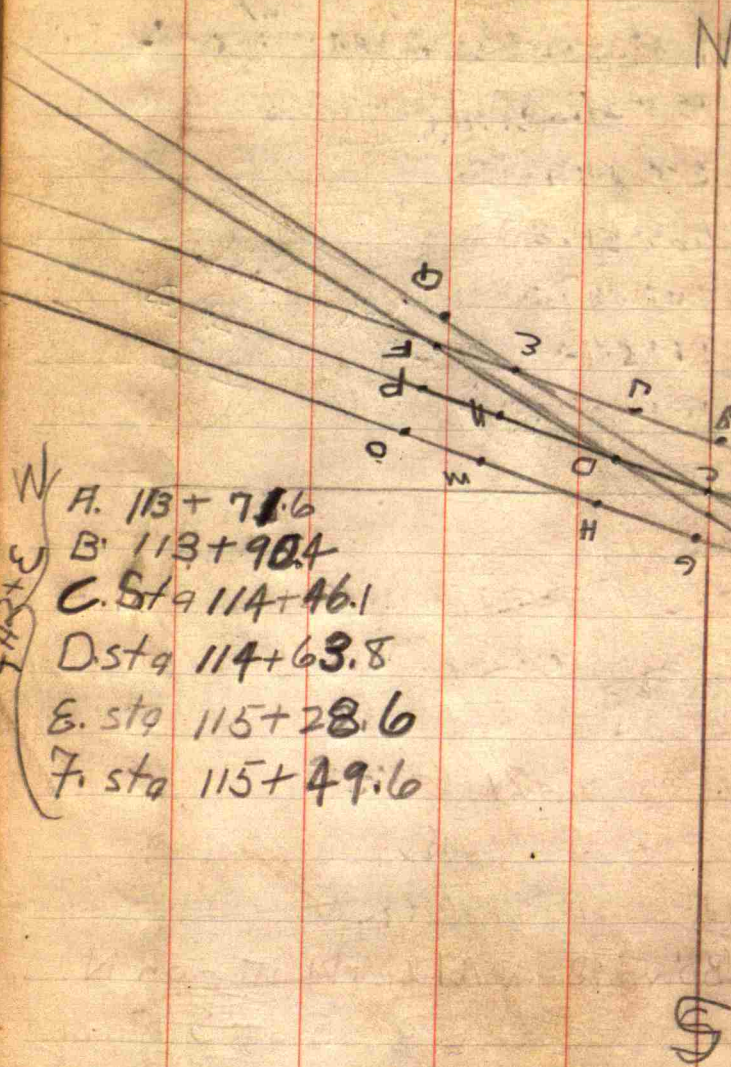 N
Q
F
3
P
L
N
B
O
D
C
M
H
G
W
A. 113 + 71.6
B. 113 + 90.4
C. Sta 114 + 46.1
D. sta 114 + 63.8
E. sta 115 + 28.6
F. sta 115 + 49.6
S